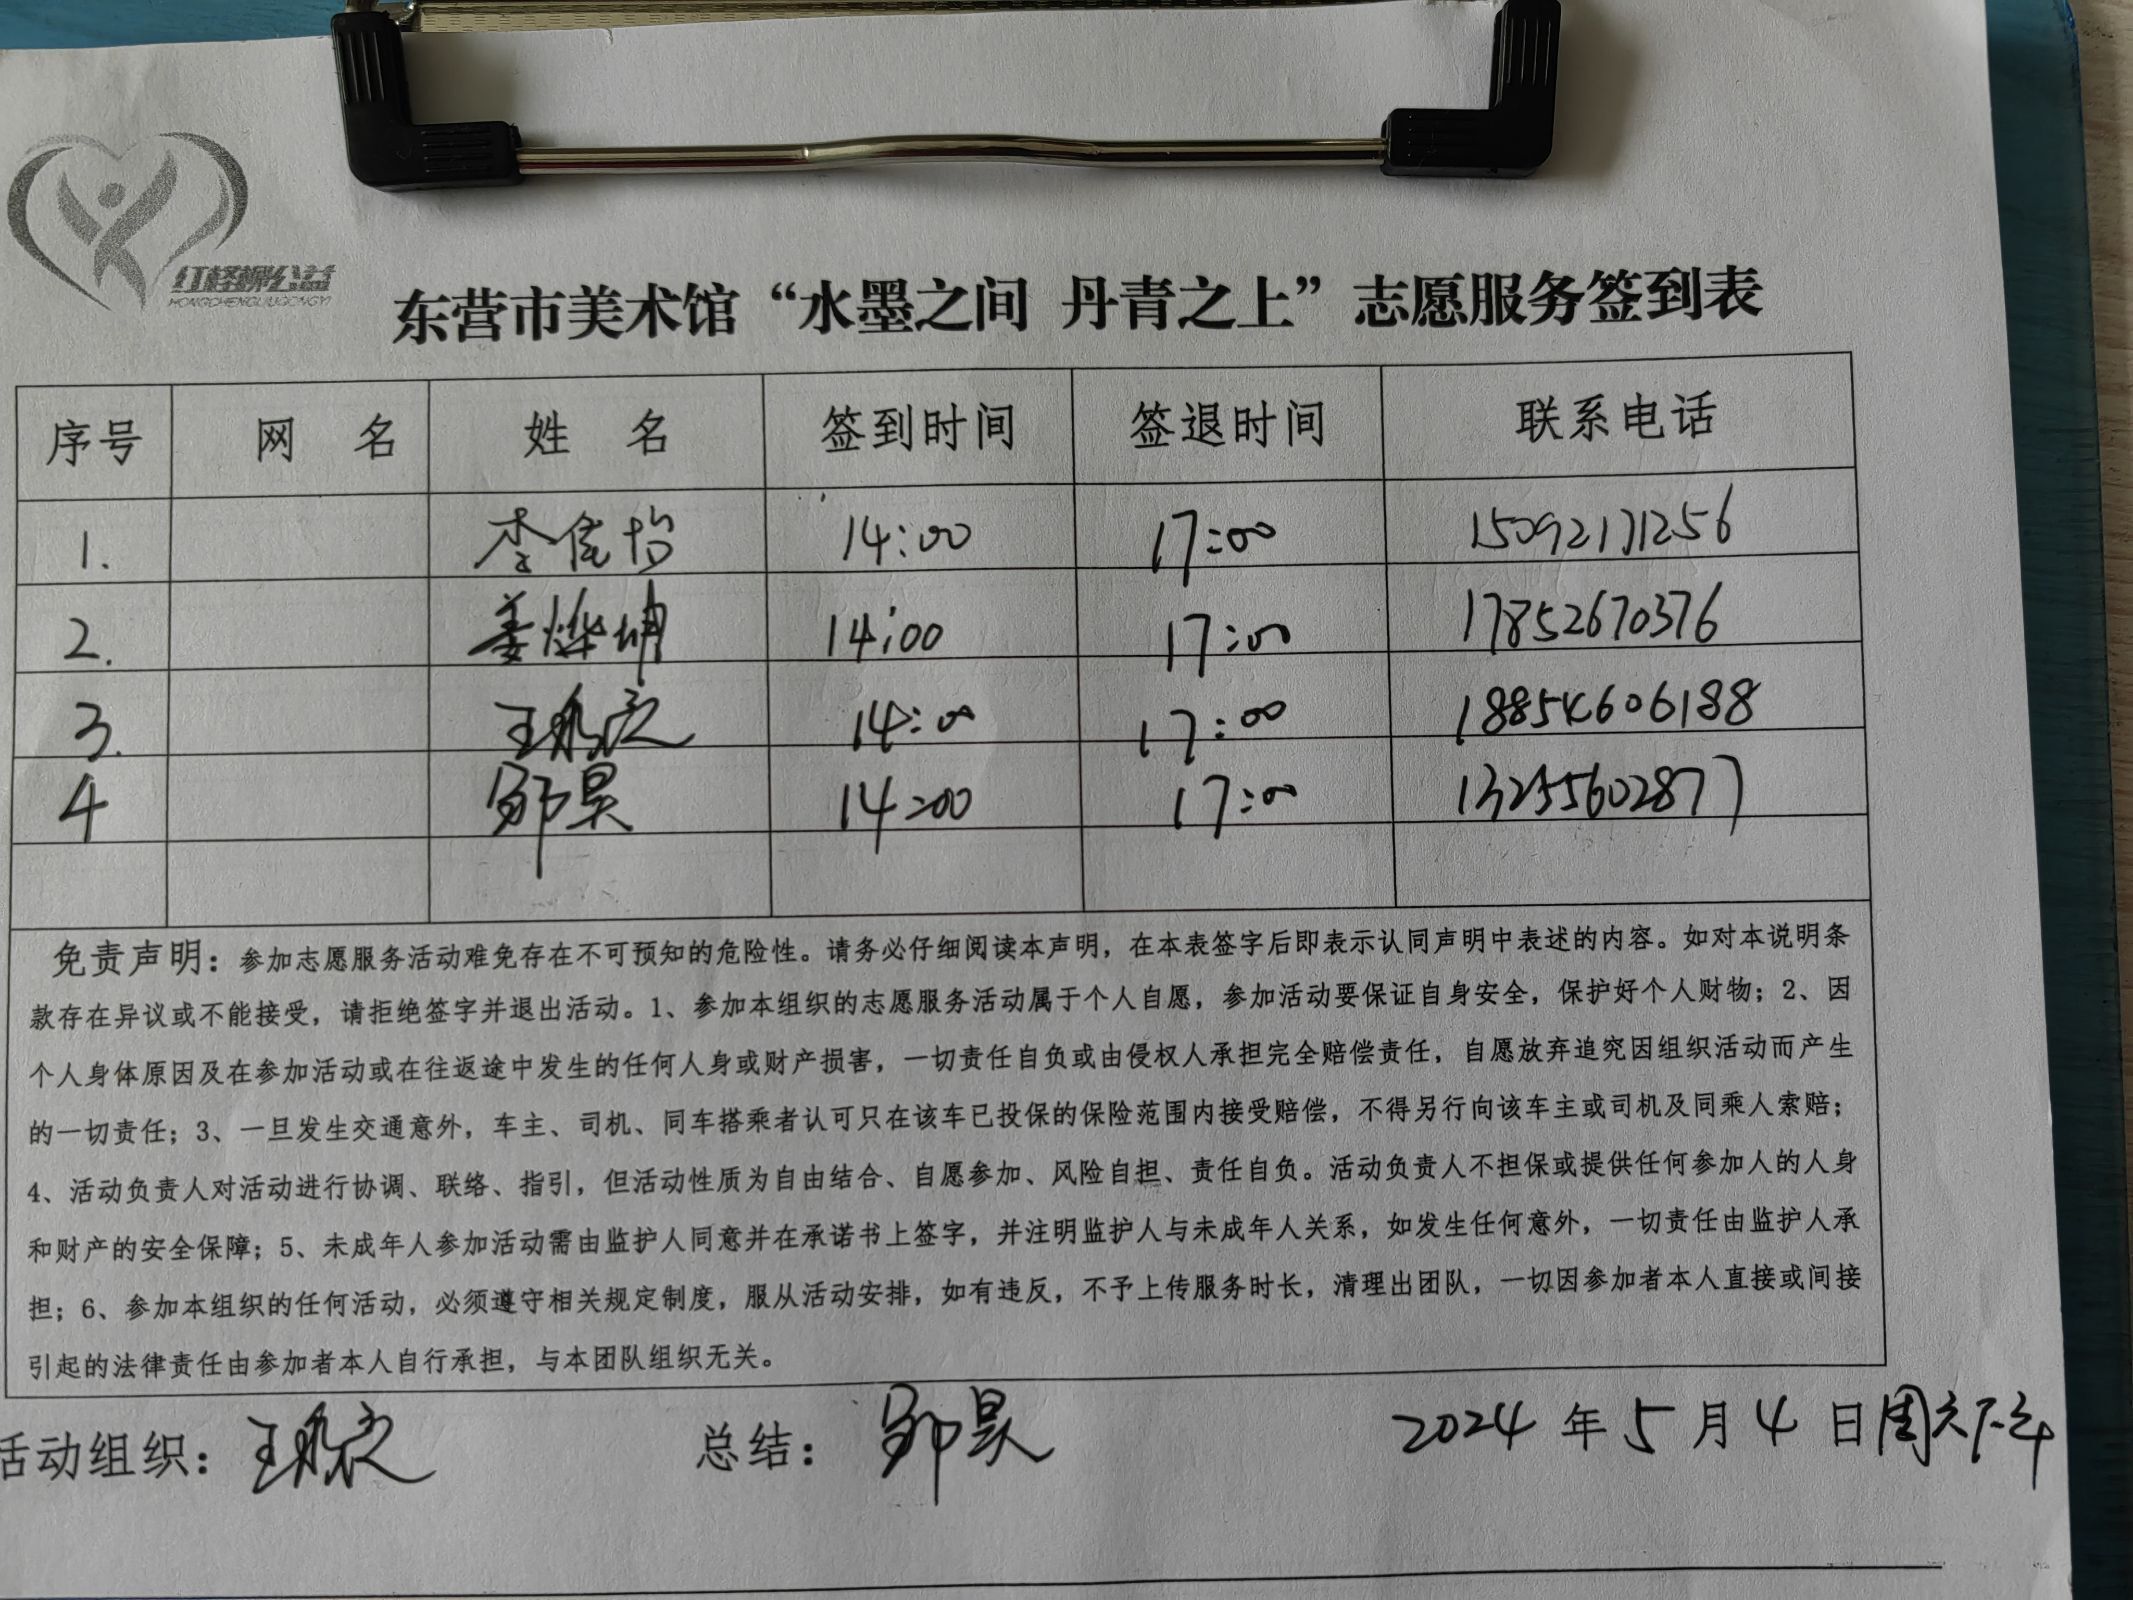 红柽柳公益
HONGCHENGLIUGONGYI
东营市美术馆“水墨之间 丹青之上”志愿服务签到表
序号 网 名 姓 名 签到时间 签退时间 联系电话
1. 李佳怡 14:00 17:00 15092171256
2. 姜烨坤 14:00 17:00 17852670376
3. 王 14:00 17:00 18854606188
4 邹昊 14:00 17:00 13255602877
免责声明：参加志愿服务活动难免存在不可预知的危险性。请务必仔细阅读本声明，在本表签字后即表示认同声明中表述的内容。如对本说明条
款存在异议或不能接受，请拒绝签字并退出活动。1、参加本组织的志愿服务活动属于个人自愿，参加活动要保证自身安全，保护好个人财物；2、因
个人身体原因及在参加活动或在往返途中发生的任何人身或财产损害，一切责任自负或由侵权人承担完全赔偿责任，自愿放弃追究因组织活动而产生
的一切责任；3、一旦发生交通意外，车主、司机、同车搭乘者认可只在该车已投保的保险范围内接受赔偿，不得另行向该车主或司机及同乘人索赔；
4、活动负责人对活动进行协调、联络、指引，但活动性质为自由结合、自愿参加、风险自担、责任自负。活动负责人不担保或提供任何参加人的人身
和财产的安全保障；5、未成年人参加活动需由监护人同意并在承诺书上签字，并注明监护人与未成年人关系，如发生任何意外，一切责任由监护人承
担；6、参加本组织的任何活动，必须遵守相关规定制度，服从活动安排，如有违反，不予上传服务时长，清理出团队，一切因参加者本人直接或间接
引起的法律责任由参加者本人自行承担，与本团队组织无关。
活动组织：王 总结：邹昊 2024 年 5 月 4 日周六下午